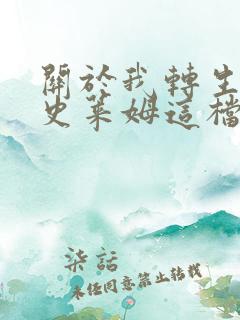 關於我轉生
史萊姆這檔
柒話
未經同意禁止轉載